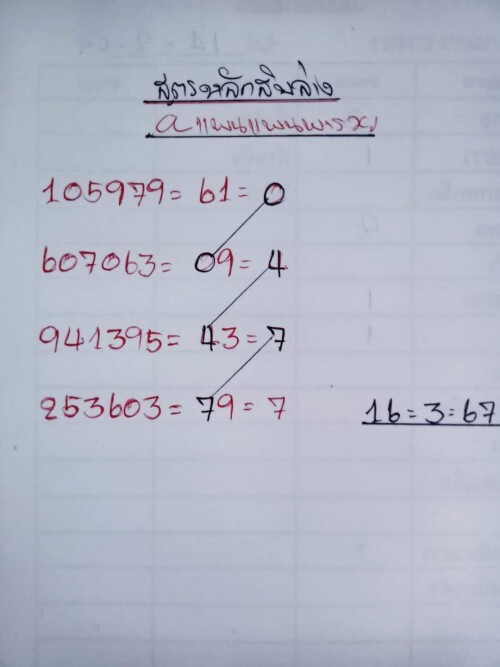 สูตรหลักสิบล่าง
a แพนแพนพารวย
105979 = 61 = 0
607063 = 09 = 4
941395 = 43 = 7
253603 = 79 = 7
16 = 3 = 67